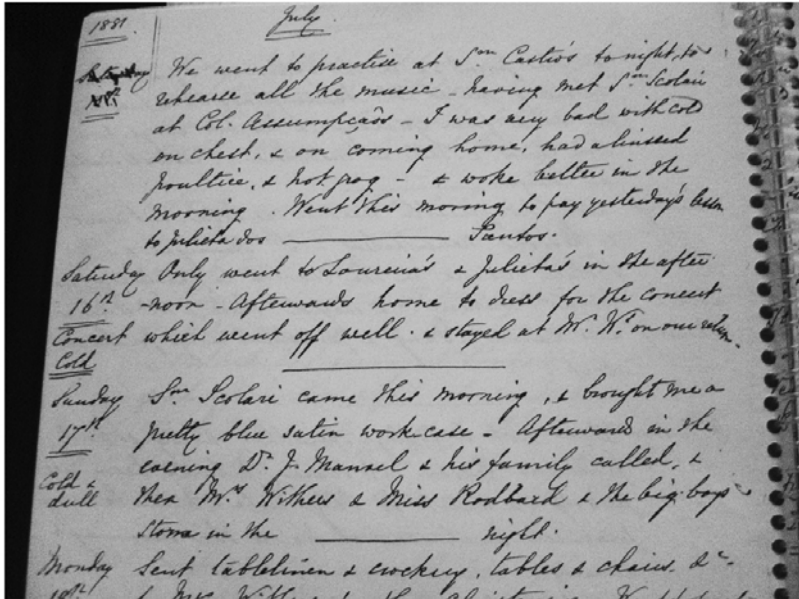 1881. July.
Saturday We went to practise at Snr Castro's tonight, to
rehearse all the music - having met Snr Scolari
at Col. Assumpcaõs - I was very bad with cold
on chest, & on coming home, had a linseed
poultice, & hot grog - & woke better in the
morning. Went this morning to pay yesterday's lesson
to Julieta dos Santos.
Saturday Only went to Loureiro's & Julieta's in the after
16th -noon - Afterwards home to dress for the concert
Concert which went off well. & stayed at Mr. W's on our return.
Cold
Sunday Snr Scolari came this morning, & brought me a
17th pretty blue satin work-case - Afterwards in the
evening Dr. J. Mansel & his family called, &
Cold & then Mrs Withers & Miss Rodbard & the big boys
dull
Storm in the night.
Monday Sent tablelinen & crockery, tables & chairs, &c-